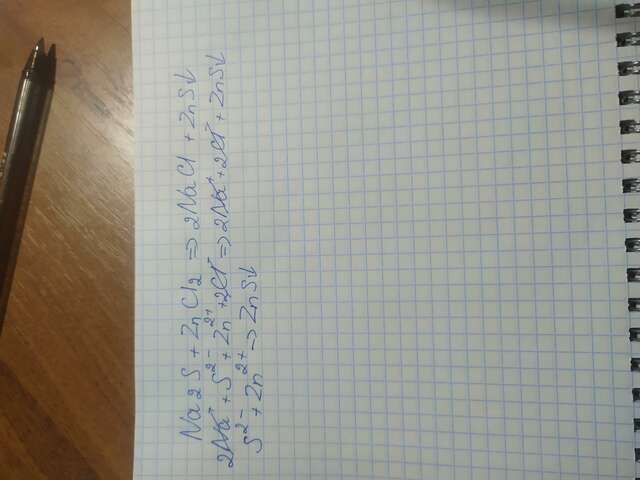 Na2S + ZnCl2 => 2NaCl + ZnS↓
2Na⁺ + S²⁻ + Zn²⁺ + 2Cl⁻ => 2Na⁺ + 2Cl⁻ + ZnS↓
S²⁻ + Zn²⁺ -> ZnS↓